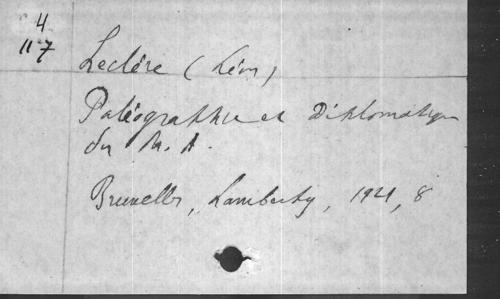 4
117
Leclère (Léon)
Paléographie et Diplomatique
du M. A.
Bruxelles, Lamberty, 1921, 8